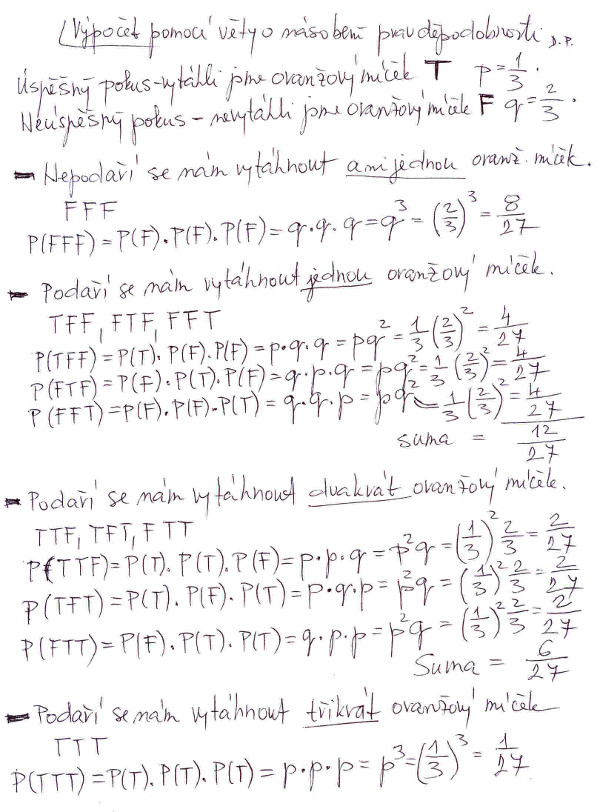 Výpočet pomocí věty o násobení pravděpodobnosti J.P.
Úspěšný pokus - vytáhli jsme oranžový míček T p = 1/3 .
Neúspěšný pokus - nevytáhli jsme oranžový míček F q = 2/3 .
- Nepodaří se nám vytáhnout ani jednou oranž. míček.
FFF
P(FFF) = P(F).P(F).P(F) = q.q.q = q³ = (2/3)³ = 8/27
- Podaří se nám vytáhnout jednou oranžový míček.
TFF, FTF, FFT
P(TFF) = P(T).P(F).P(F) = p.q.q = pq² = 1/3 (2/3)² = 4/27
P(FTF) = P(F).P(T).P(F) = q.p.q = pq² = 1/3 (2/3)² = 4/27
P(FFT) = P(F).P(F).P(T) = q.q.p = pq² = 1/3 (2/3)² = 4/27
suma = 12/27
- Podaří se nám vytáhnout dvakrát oranžový míček.
TTF, TFT, FTT
P(TTF) = P(T).P(T).P(F) = p.p.q = p²q = (1/3)² 2/3 = 2/27
P(TFT) = P(T).P(F).P(T) = p.q.p = p²q = (1/3)² 2/3 = 2/27
P(FTT) = P(F).P(T).P(T) = q.p.p = p²q = (1/3)² 2/3 = 2/27
Suma = 6/27
- Podaří se nám vytáhnout třikrát oranžový míček
TTT
P(TTT) = P(T).P(T).P(T) = p.p.p = p³ = (1/3)³ = 1/27